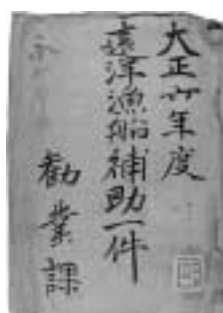 大正六年度
遠洋漁船補助一件
勧業課